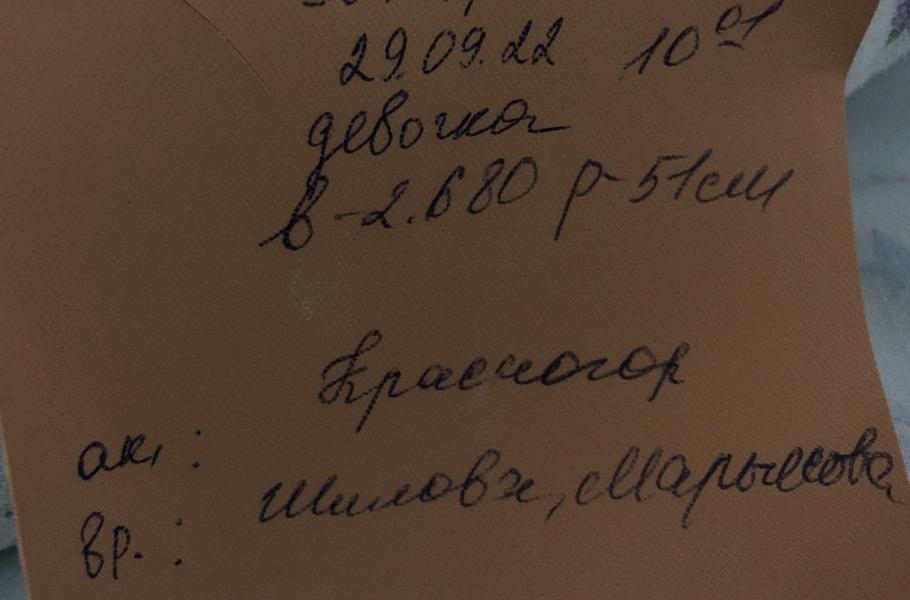 29.09.22 10 01
девочка
в-2.680 р-51см
Красногор
ак.:
Шилова,
вр.: